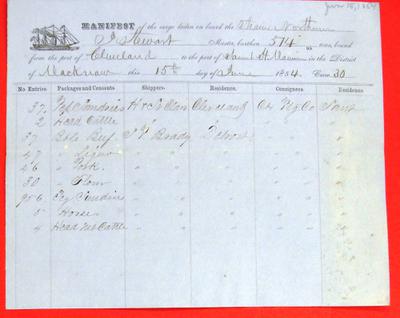 June 15, 1854
MANIFEST of the cargo laden on board the Steamer Northerner
J. Stewart Master, burthen 514 tons, bound
from the port of Cleveland to the port of Saint St. Marie in the District
of Mackinaw this 15th day of June 1854. Crew 30
No Entries Packages and Contents Shippers. Residence. Consignees Residence
37 Pkg Sundries Cleveland
2 Head Cattle " "
37 Bbls Beef Brady Detroit
47 " Liquor " "
46 " Pork " "
30 " Flour " "
956 Pkg Sundries " "
5 Horses " "
4 Head Cattle " "